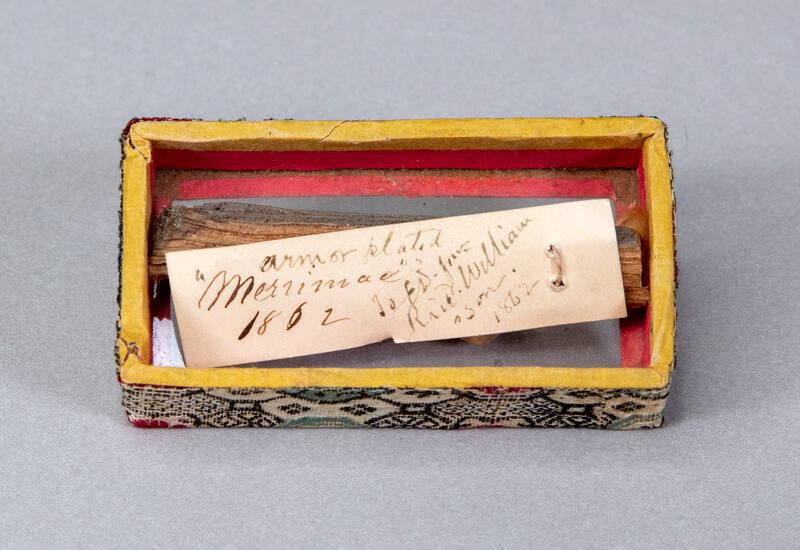 armor plated
"Merrimac"
1862
To E.D. Jun
Rich. William
son.
1862